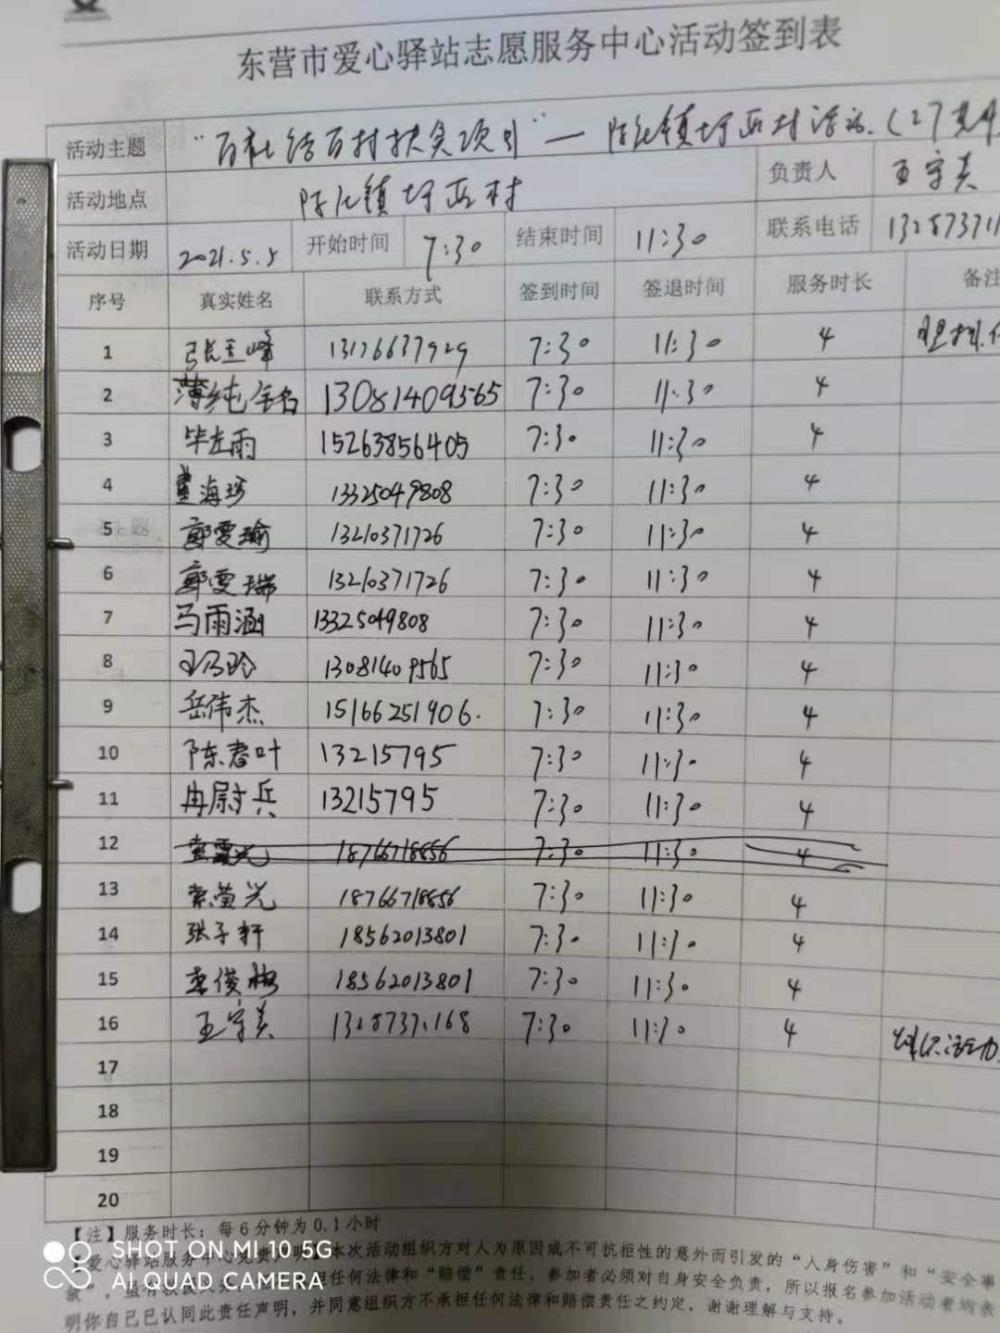 东营市爱心驿站志愿服务中心活动签到表
活动主题 "百社结百村扶贫项目"— 陈
活动地点 镇 西村 负责人 王守美
活动日期 2021.5.5 开始时间 7:30 结束时间 11:30 联系电话
序号 真实姓名 联系方式 签到时间 签退时间 服务时长 备注
1 张玉峰 13176637929 7:30 11:30 4
2 薄纯 130814093565 7:30 11:30 4
3 毕 雨 15263856405 7:30 11:30 4
4 海珍 13325049808 7:30 11:30 4
5 郭雯瑜 13210371726 7:30 11:30 4
6 郭雯瑞 13210371726 7:30 11:30 4
7 马雨涵 13325049808 7:30 11:30 4
8 13081409565 7:30 11:30 4
9 岳伟杰 15166251906. 7:30 11:30 4
10 陈春叶 13215795 7:30 11:30 4
11 冉尉兵 13215795 7:30 11:30 4
12 18766718856 7:30 11:30 4
13 索萤光 18766718856 7:30 11:30 4
14 张子轩 18562013801 7:30 11:30 4
15 李俊彬 18562013801 7:30 11:30 4
16 王守美 7:30 11:30 4
17
18
19
20
【注】服务时长：每6分钟为0.1小时
爱心驿站服务中心免责声明：本次活动组织方对人为原因或不可抗拒性的意外而引发的"人身伤害"和"安全事
故"， 担任何法律和"赔偿"责任，参加者必须对自身安全负责，所以报名参加活动者均表
明你自己已认同此责任声明，并同意组织方不承担任何法律和赔偿责任之约定，谢谢理解与支持。
SHOT ON MI 10 5G
AI QUAD CAMERA